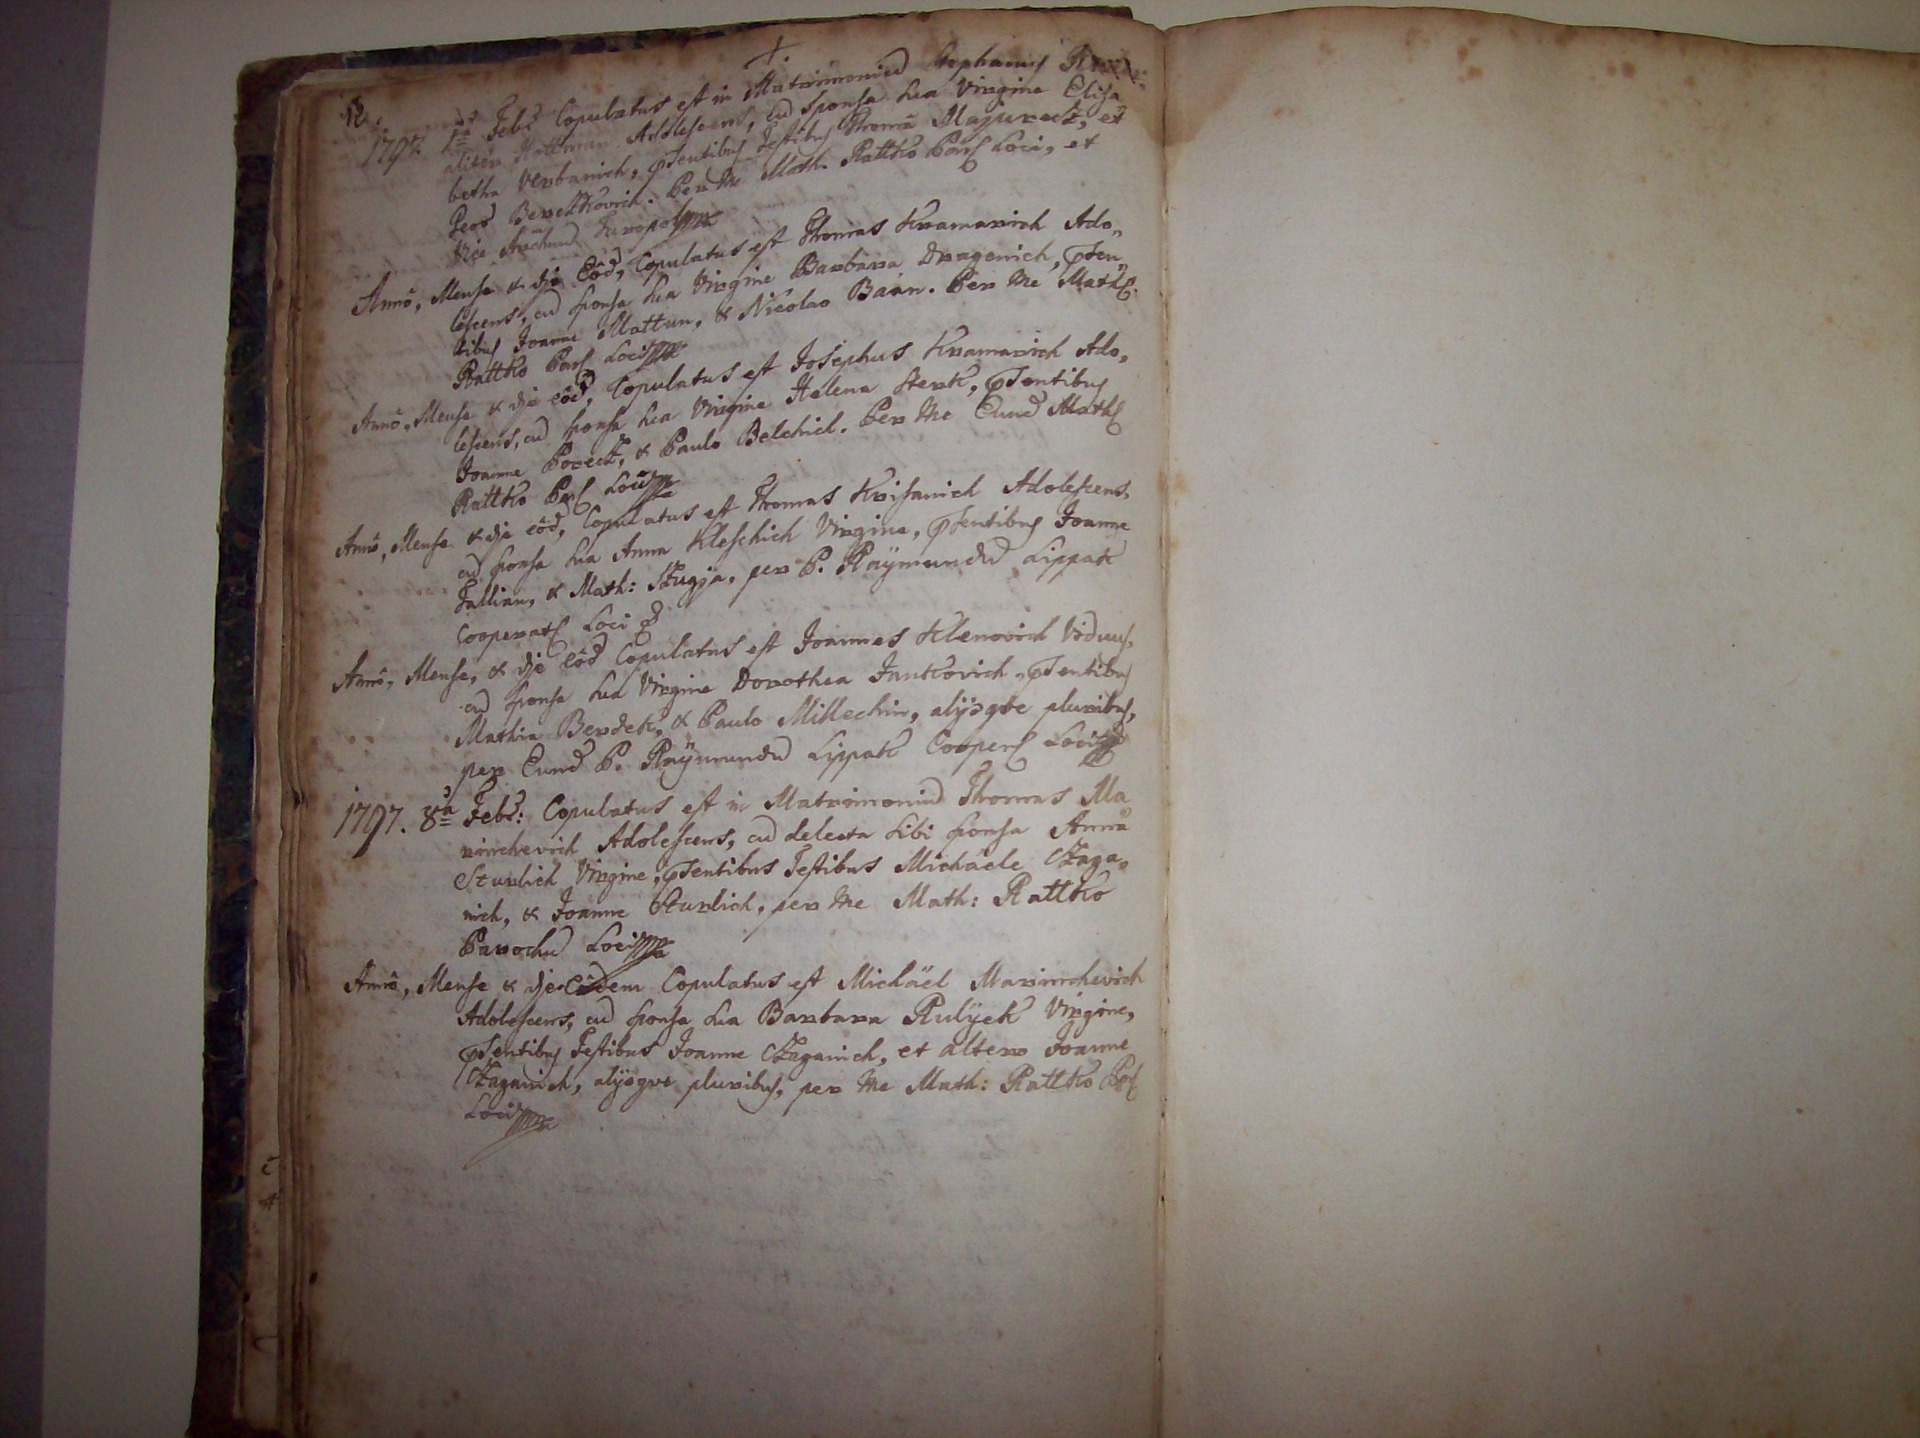 +.
1797. 1ª Febr: Copulatus est in Matrimoniū Stephanus
aliter Hottman Adolescens, cū sponsa sua Virgine Elisa
betha Verbanich, pſentibus Testibus Thoma Majurecz, et
Geor Bereczkovich. Per Me Math. Rattko Par Loci, et
Vice Archid Turopol
Anno, Mense & die eod, Copulatus est Thomas Kramarich Ado„
lescens, cū sponsa sua Virgine Barbara Dragenich, pſen„
tibus Joanne Mattun, & Nicolao Baan. Per Me Math:
Rattko Par Loci
Anno, Mense & die eod, Copulatus est Josephus Kramarich Ado„
lescens, cū sponsa sua Virgine Helena Sterk, pſentibus
Joanne Porecz, & Paulo Belchich. Per Me Eund Math
Rattko Par Loci
Anno, Mense & die eod, Copulatus est Thomas Krisanich Adolescens,
cū sponsa sua Anna Kleschich Virgine, pſentibus Joanne
Jallian, & Math: Szugja, per P. Raÿmundū Lippak
Cooperat Loci
Anno, Mense, & die eod Copulatus est Joannes Klenovich Viduus,
cū sponsa sua Virgine Dorothea Jankovich, pſentibus
Mathia Berdek, & Paulo Millechin, alÿsqve pluribus,
per Eund P. Raÿmundū Lippak Cooper Loci
1797. 8ª Febr: Copulatus est in Matrimoniū Thomas Ma
rinchevich Adolescens, cū delecta sibi sponsa Anna
Sturlich Virgine, pſentibus Testibus Michaele Czaga„
nich, & Joanne Sturlich, per Me Math: Rattko
Parochū Loci
Anno, Mense & die eodem Copulatus est Michaël Marinchevich
Adolescens, cū sponsa sua Barbara Rulÿek Virgine,
pſentibus Testibus Joanne Czaganich, et altero Joanne
Czaganich, alÿsqve pluribus, per Me Math: Rattko Par
Loci